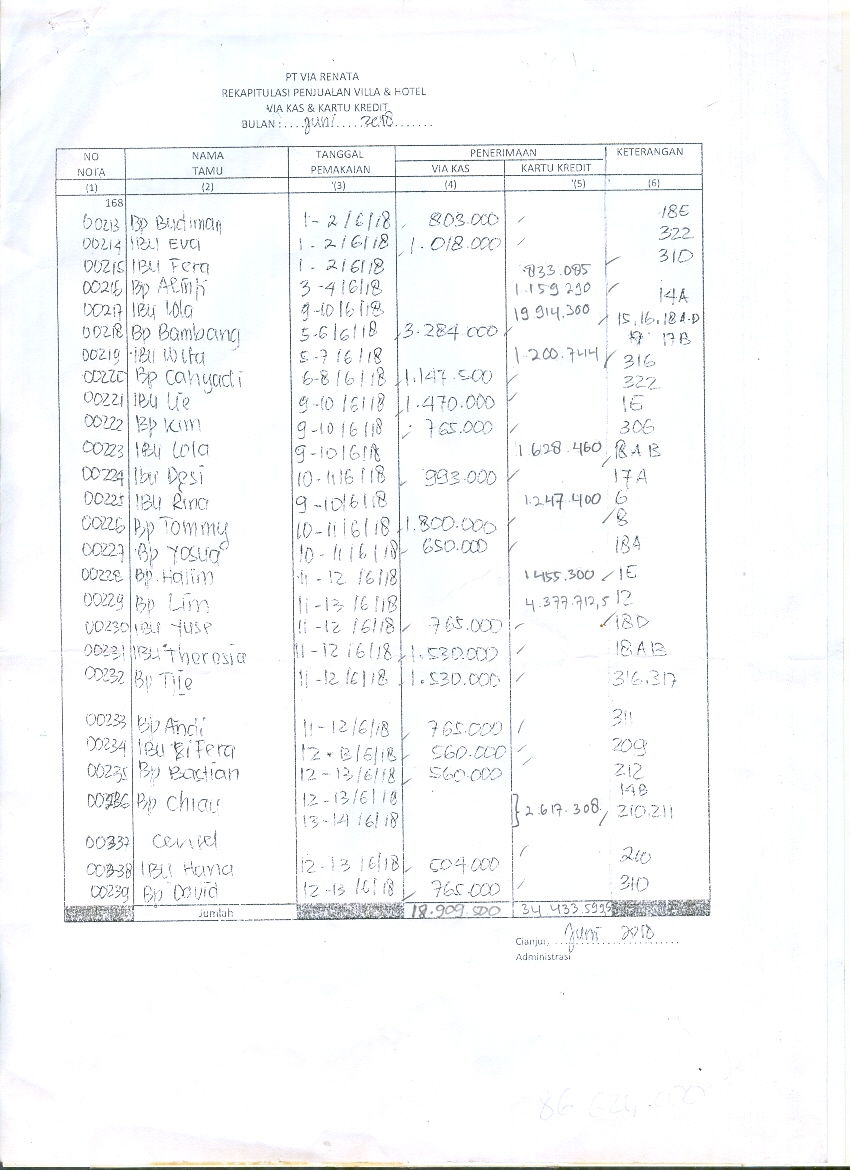 PT VIA RENATA
REKAPITULASI PENJUALAN VILLA & HOTEL
VIA KAS & KARTU KREDIT
BULAN :....Juni.....2018.......
NO NOTA NAMA TAMU TANGGAL PEMAKAIAN PENERIMAAN VIA KAS KARTU KREDIT KETERANGAN
(1) (2) '(3) (4) '(5) (6)
168
00213 Bp Budiman 1-2/6/18 803.000 18E
00214 IBU Eva 1-2/6/18 1.018.000 322
00215 IBU Fera 1-2/6/18 833.085 310
00216 Bp 3-4/6/18 1.159.290 14A
00217 IBU Lola 9-10/6/18 19.914.300 15,16,18A-D
00218 Bp Bambang 5-6/6/18 3.284.000 17B
00219 IBU Wita 5-7/6/18 1.200.744 316
00220 Bp Cahyadi 6-8/6/18 1.147.500 322
00221 IBU Lie 9-10/6/18 1.470.000 1E
00222 Bp Kim 9-10/6/18 765.000 306
00223 IBU Lola 9-10/6/18 1.628.460 18AB
00224 Ibu Desi 10-11/6/18 993.000 17A
00225 IBU Rina 9-10/6/18 1.247.400 6
00226 Bp Tommy 10-11/6/18 1.800.000 8
00227 Bp Yosua 10-11/6/18 650.000 18A
00228 Bp Halim 11-12/6/18 1455.300 1E
00229 Bp Lim 11-13/6/18 4.377.712,5 12
00230 IBU Yuse 11-12/6/18 765.000 18D
00231 IBU Theresia 11-12/6/18 1.530.000 18AB
00232 Bp Tije 11-12/6/18 1.530.000 316.317
00233 Bp Andi 11-12/6/18 765.000 311
00234 IBU Fera 12-13/6/18 560.000 209
00235 Bp Bastian 12-13/6/18 560.000 212
14B
00336 Bp Chiau 12-13/6/18 2.617.308 210.211
13-14/6/18
00337 Cancel
00338 IBU Hana 12-13/6/18 504.000 210
00239 Bp David 12-13/6/18 765.000 310
Jumlah 18.909.500 34.433.599,5
Cianjur, Juni 2018
Administrasi